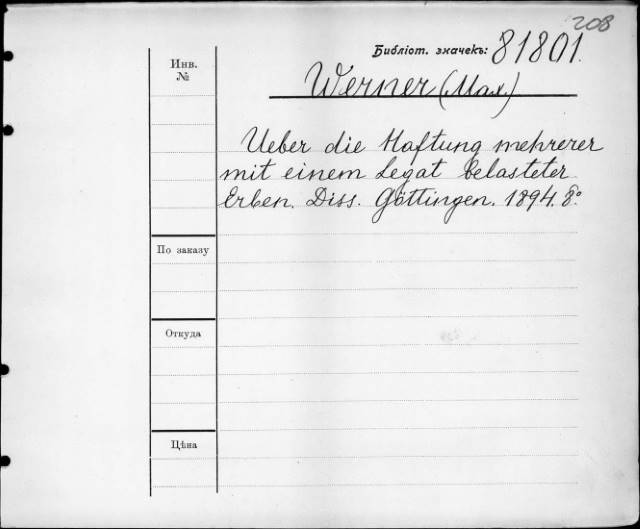 208
Библіот. значекъ: 81801.
Инв.
№
Werner (Max.)
Ueber die Haftung mehrerer
mit einem Legat belasteter
Erben. Diss. Göttingen. 1894. 8°.
По заказу
Откуда
Цѣна